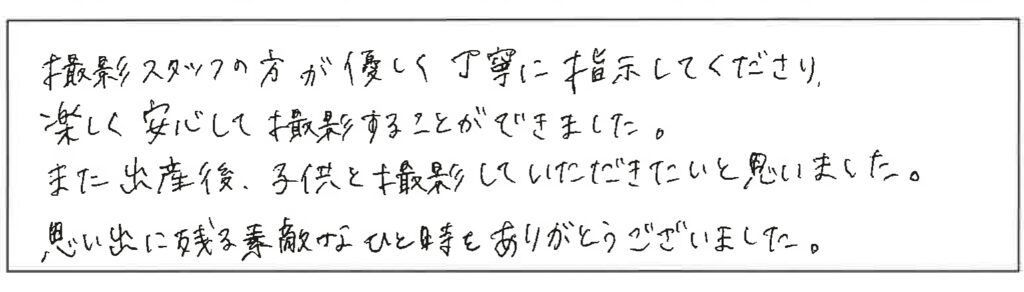 撮影スタッフの方が優しく丁寧に指示してくださり、
楽しく安心して撮影することができました。
また出産後、子供と撮影していただきたいと思いました。
思い出に残る素敵なひと時をありがとうございました。